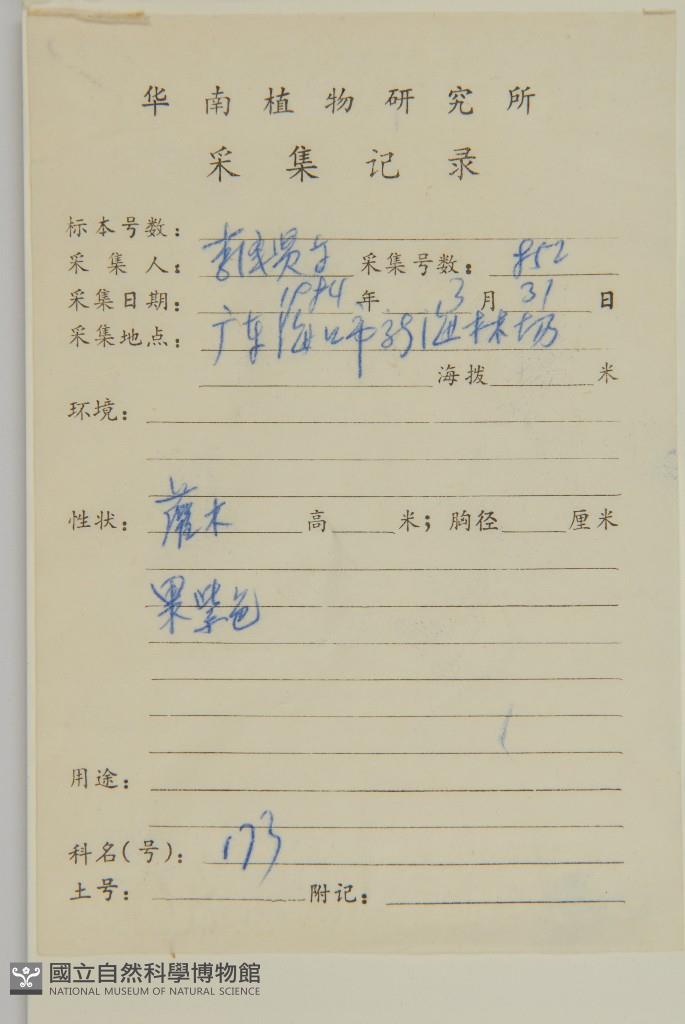 华南植物研究所
采集记录
标本号数：
采集人： 采集号数： 852
采集日期： 1984 年 3 月 31 日
采集地点： 广东海口市 林场
海拨 米
环境：
性状： 灌木 高 米；胸径 厘米
果紫色
用途：
科名(号)： 173
土号： 附记：
國立自然科學博物館
NATIONAL MUSEUM OF NATURAL SCIENCE